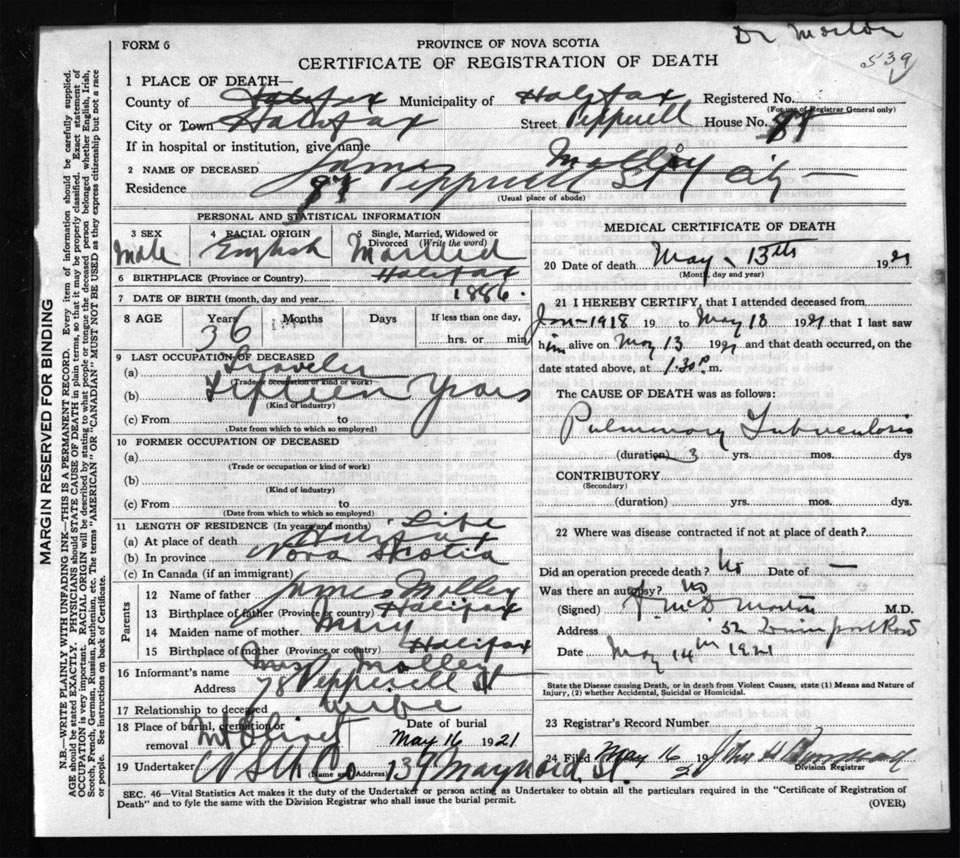 Dr Morton
539
FORM 6
PROVINCE OF NOVA SCOTIA
CERTIFICATE OF REGISTRATION OF DEATH
1 PLACE OF DEATH—
County of Halifax Municipality of Halifax Registered No.
(For use of Registrar General only)
City or Town Halifax Street Pepperell House No. 87
If in hospital or institution, give name
2 NAME OF DECEASED James Molley
Residence 87 Pepperell St City —
(Usual place of abode)
PERSONAL AND STATISTICAL INFORMATION
3 SEX Male
4 RACIAL ORIGIN English
5 Single, Married, Widowed or Divorced (Write the word) Married
6 BIRTHPLACE (Province or Country) Halifax
7 DATE OF BIRTH (month, day and year) 1886.
8 AGE Years Months Days If less than one day,
36 hrs. or min
9 LAST OCCUPATION OF DECEASED
(a) Traveler
(Trade or occupation or kind of work)
(b) Fifteen Years
(Kind of industry)
(c) From to
(Date from which to which so employed)
10 FORMER OCCUPATION OF DECEASED
(a)
(Trade or occupation or kind of work)
(b)
(Kind of industry)
(c) From to
(Date from which to which so employed)
11 LENGTH OF RESIDENCE (In years and months) Life
(a) At place of death Halifax
(b) In province Nova Scotia
(c) In Canada (if an immigrant)
Parents
12 Name of father James Molley
13 Birthplace of father (Province or country) Halifax
14 Maiden name of mother Mary
15 Birthplace of mother (Province or country) Halifax
16 Informant's name Mrs Molley
Address 78 Pepperell St
17 Relationship to deceased wife
18 Place of burial, cremation or removal Mt Olivet
Date of burial May 16 1921
19 Undertaker N S U Co 139 Maynard St.
(Name and Address)
MEDICAL CERTIFICATE OF DEATH
20 Date of death May 13th 1921
(Month, day and year)
21 I HEREBY CERTIFY, that I attended deceased from
Jan-1918 19 to May 13 1921 that I last saw
him alive on May 13 1921 and that death occurred, on the
date stated above, at 1.30 P. m.
The CAUSE OF DEATH was as follows:
Pulmonary Tuberculosis
(duration) 3 yrs. mos. dys
CONTRIBUTORY
(Secondary)
(duration) yrs. mos. dys.
22 Where was disease contracted if not at place of death?
Did an operation precede death? No Date of —
Was there an autopsy? No
(Signed) Morton M.D.
Address 52 Row
Date May 14th 1921
State the Disease causing Death, or in death from Violent Causes, state (1) Means and Nature of
Injury, (2) whether Accidental, Suicidal or Homicidal.
23 Registrar's Record Number
24 Filed May 16 1921 John
Division Registrar
SEC. 46—Vital Statistics Act makes it the duty of the Undertaker or person acting as Undertaker to obtain all the particulars required in the "Certificate of Registration of
Death" and to fyle the same with the Division Registrar who shall issue the burial permit.
(OVER)
MARGIN RESERVED FOR BINDING
N.B.—WRITE PLAINLY WITH UNFADING INK—THIS IS A PERMANENT RECORD. Every item of information should be carefully supplied.
AGE should be stated EXACTLY. PHYSICIANS should STATE CAUSE OF DEATH in plain terms, so that it may be properly classified. Exact statement of
OCCUPATION is very important. RACIAL ORIGIN will be described by stating to what people or tongue the deceased person belonged whether English, Irish,
Scotch, French, German, Russian, Ruthenian, etc. The terms "AMERICAN" OR "CANADIAN" MUST NOT BE USED as they express citizenship but not a race
or people. See instructions on back of Certificate.